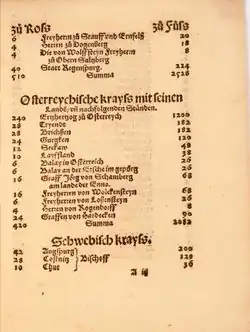 zů Ross zů Füss
6 Freyherrn zů Stauff vnd Ernfels 20
4 Herren zů Degenberg 18
4 Die von Wolffstein Freyherrn 8
zů Obern Sultzberg
40 Statt Regenspurg. 224
510 Summa 2528
Osterreychische krayss mit seinen
Landē/ vñ nachfolgenden Stånden.
240 Ertzhertzog zů Osterreych 1200
28 Tryende 182
28 Brichßen 182
24 Gurgken 120
12 Seckaw 48
10 Lauffland 38
6 Balay in Osterreich 68
6 Balay an der Etsche im gepörg 68
16 Graff Jörg von Schamberg
am lande der Enns.
16 Freyherren von Wolckensteyn 68
6 Freyherren von Losensteyn 26
4 Herren von Rogendorff 8
24 Graffen von Hardecken 90
420 Summa 2082
Schwebisch krayss.
42 Augspurg 200
28 Costnitz Bischoff 120
10 Chur 36
A iij